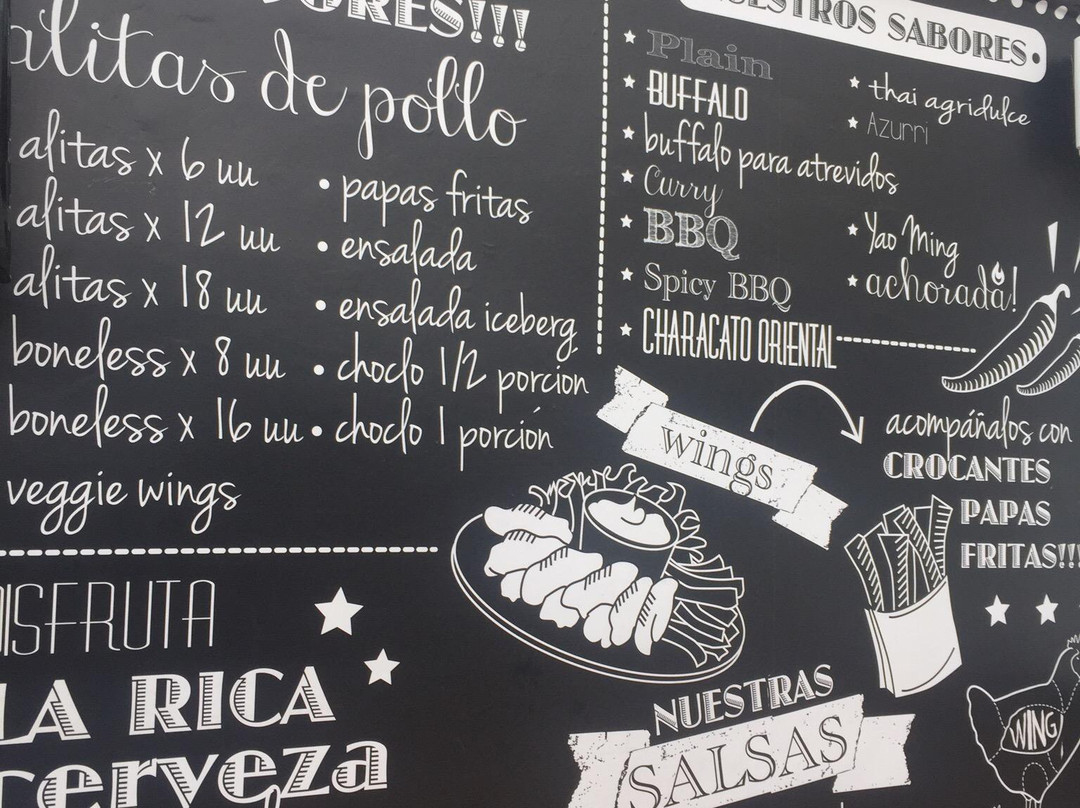 ORES!!!
alitas de pollo
alitas x 6 uu
alitas x 12 uu
alitas x 18 uu
boneless x 8 uu
boneless x 16 uu
veggie wings
• papas fritas
• ensalada
• ensalada iceberg
• choclo 1/2 porción
• choclo 1 porción
NUESTROS SABORES•
Plain
BUFFALO
buffalo para atrevidos
Curry
BBQ
Spicy BBQ
CHARACATO ORIENTAL
thai agridulce
Azurri
Yao Ming
achorada!
wings
acompáñalos con
CROCANTES
PAPAS
FRITAS!!!
DISFRUTA
LA RICA
cerveza
NUESTRAS
SALSAS
WING